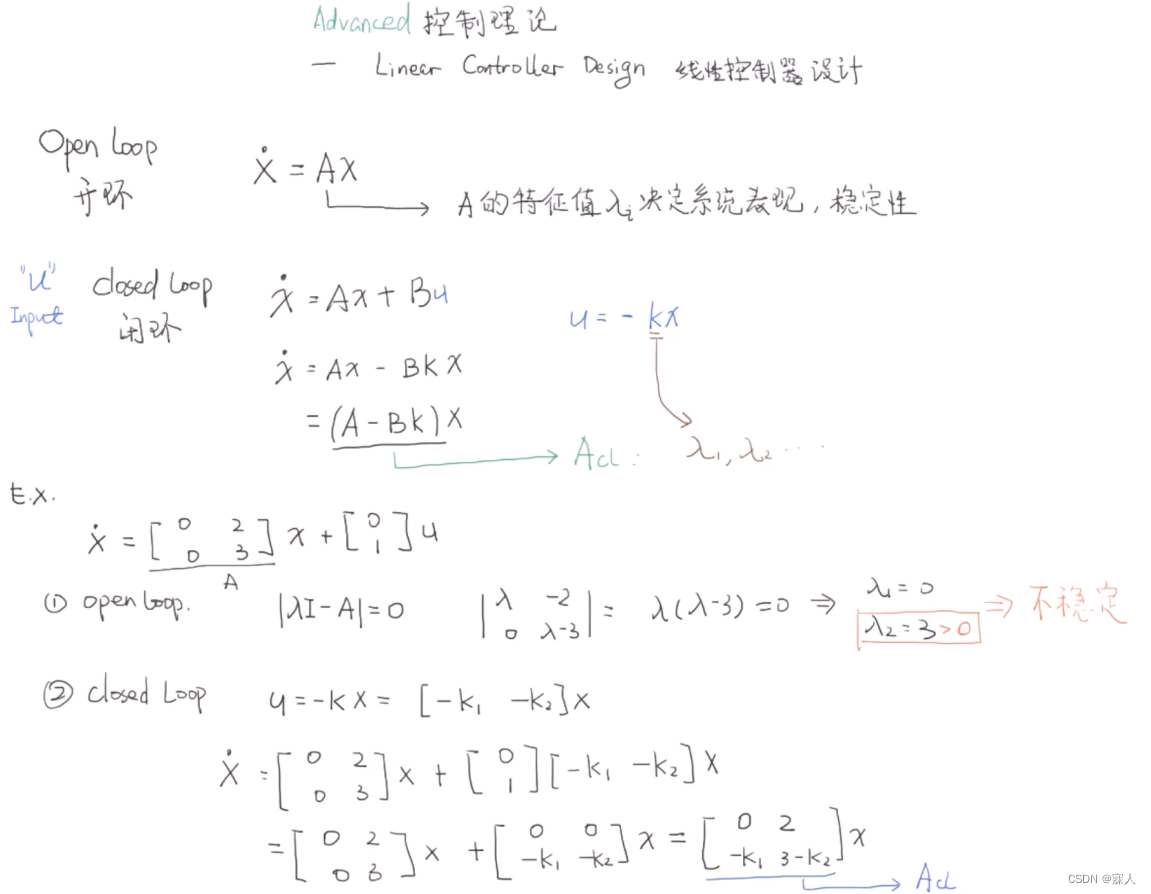 Advanced 控制理论
— Linear Controller Design 线性控制器设计
Open Loop
开环
ẋ = Ax
A的特征值λi决定系统表现，稳定性
"u"
Input
closed Loop
闭环
ẋ = Ax + Bu
u = - kx
ẋ = Ax - Bk x
= (A - Bk) x
Acl : λ1, λ2 ....
E.X.
ẋ = [0 2
0 3] x + [0
1] u
A
① open loop. |λI-A|=0 |λ -2
0 λ-3| = λ(λ-3) =0 ⇒ λ1 = 0
λ2 = 3 > 0 ⇒ 不稳定
② closed Loop u = -k x = [-k1 -k2] x
ẋ = [0 2
0 3] x + [0
1] [-k1 -k2] x
= [0 2
0 3] x + [0 0
-k1 -k2] x = [0 2
-k1 3-k2] x
Acl
CSDN @寐人